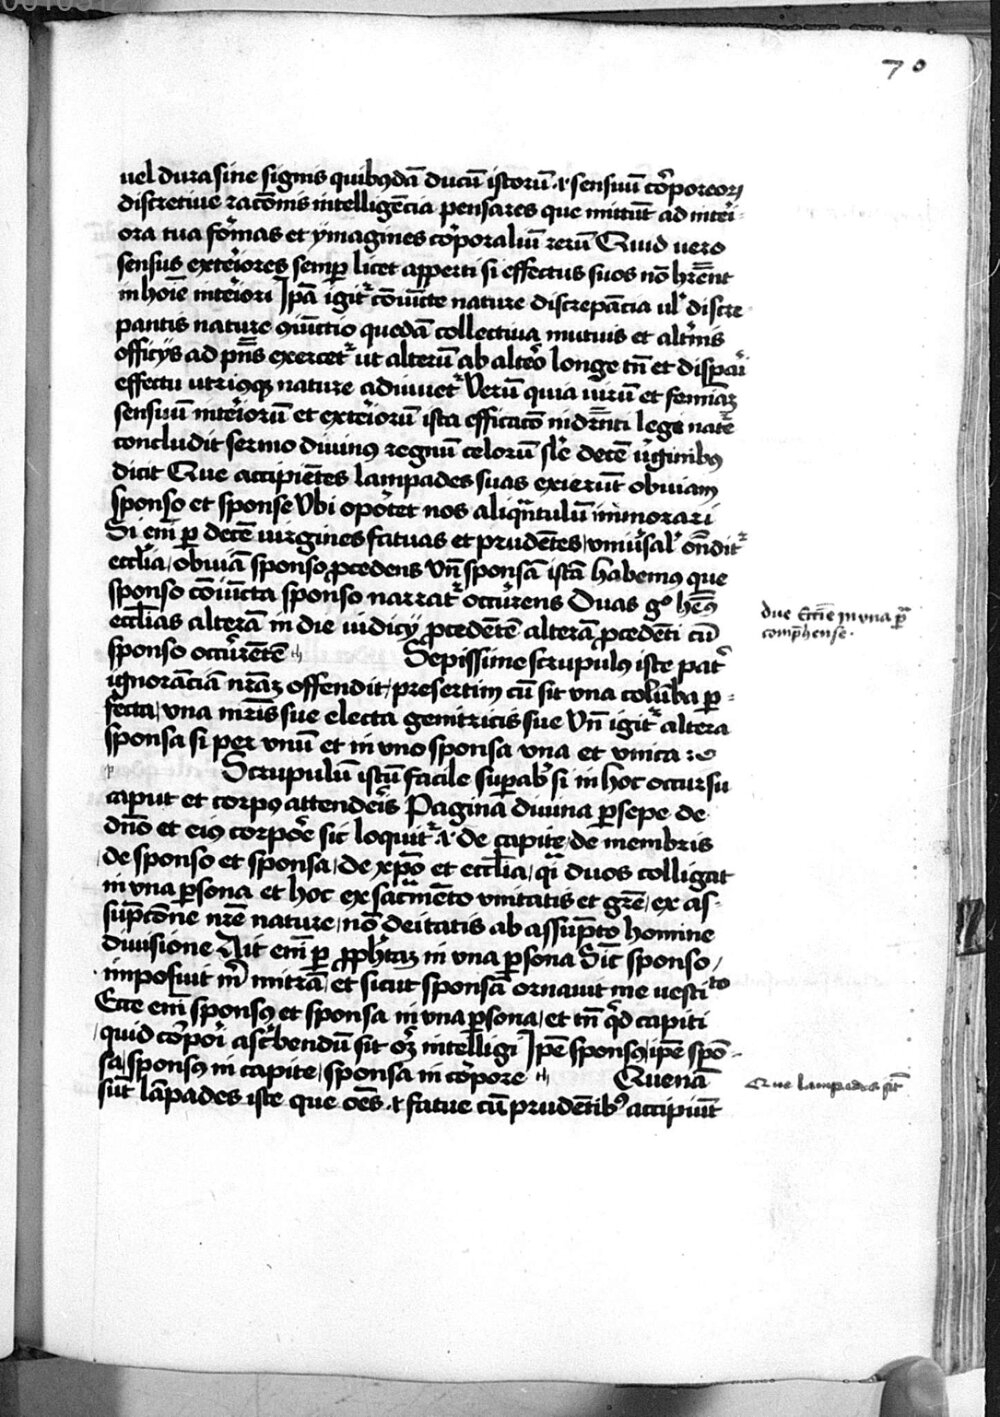 70
uel dura sine signis quibusdā ducū istorū ⁊ sensuū cōrporeoꝝ
discretiue racōnis intelligēcia pensares que mittūt ad interi-
ora tua formas et ymagines corporaliū rerū Quid uero
sensus exteriores semꝑ licet apperti si effectus suos nō hr̄ent
in hoīe interiori Ipā igitr̄ cōiūcte nature discrepācia ul' discre-
pantis nature ꝯiūctio quedā collectiua mutuis et alt'nis
officijs ad pn̄s exercetr̄ ut alterū ab altero longe tn̄ et dispari
effectu utriusqꝫ nature adiuuetr̄ Verū quia uirū et femiaꝫ
sensuū interiorū et exteriorū ista efficacō legi nat'e
concludit sermo diuinus regnū celorū sl'e decē u'ginibus
dicit Que accipiētes lampades suas exierūt obuiam
sponso et sponse Vbi oportet nos aliqn̄tulū inmorari
Si em̄ ꝑ decē uirgines fatuas et prudētes uniu'sal' ondit'
eccl'ia, obuiā sponso ꝓcedens Vn̄ sponsā istā habemus que
sponso cōiūcta sponso narratr̄ occurrens Duas g° hēs
eccl'ias alterā in die iudicij ꝓcedētē alterā ꝓcedēti cū
sponso occurrētē Sepissime scrupulus iste patr̄
ignorāciā nr̄aꝫ offendit, presertim cū sit vna colūba ꝑ-
fecta, vna mr̄is sue electa genitricis sue Vn̄ igitr̄ altera
sponsa si per vnū et in vno sponsa vna et vnica
Scrupulū istū facile suꝑab' si in hoc occursu
caput et corpus attenderis Paginā diuina ꝑsepe de
dn̄o et eius corpore sic loquitr̄ .i. de capite, de membris
de sponso et sponsa, de xp̄o et eccl'ia, qi duos colligat
in vna ꝑsona et hoc ex sacramēto vnitatis et gr̄e, ex as-
sūpcōne nr̄e nature, nō deitatis ab assūpto homine
diuisione Ait em̄ ꝑ ꝓph'taꝫ in vna ꝑsona Sic̄ sponso,
imposuit m̄ mitrā, et sicut sponsā ornauit me uesti to
Ecce em̄ sponsus et sponsa in vna ꝑsona, et tn̄ qd capiti
quid corpori ascribendū sit oꝫ intelligi Ip̄e sponsus, ip̄e spō-
sa, sponsus in capite, sponsa in corpore Quenā
sūt lāpades iste que oēs ⁊ fatue cū prudētibus accipiūt
due eccl'ie in vna ꝑ
comp̄hense.
Que lampades sūt